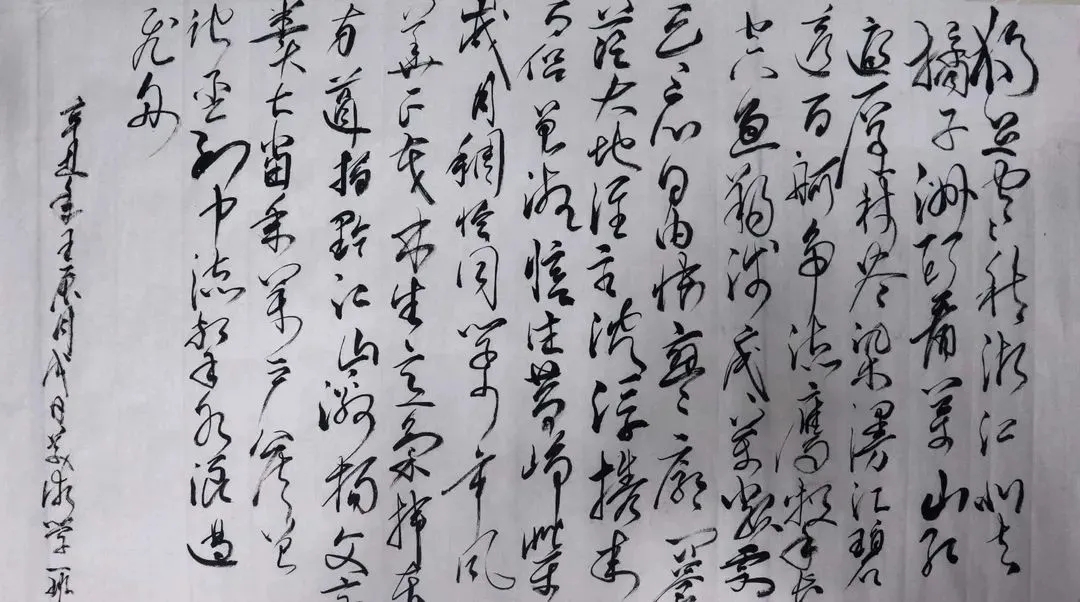 獨立寒秋湘江北去
橘子洲頭看萬山紅
遍層林盡染漫江碧
透百舸争流鷹擊長
空魚翔淺底萬類霜
天競自由悵寥廓問蒼
茫大地誰主沉浮攜來
百侣曾游憶往昔崢嶸
歲月稠恰同學少年風
華正茂書生意氣揮斥
方遒指點江山激揚文字
糞土當年萬户侯曾
記否到中流擊水浪遏
飛舟
辛丑年